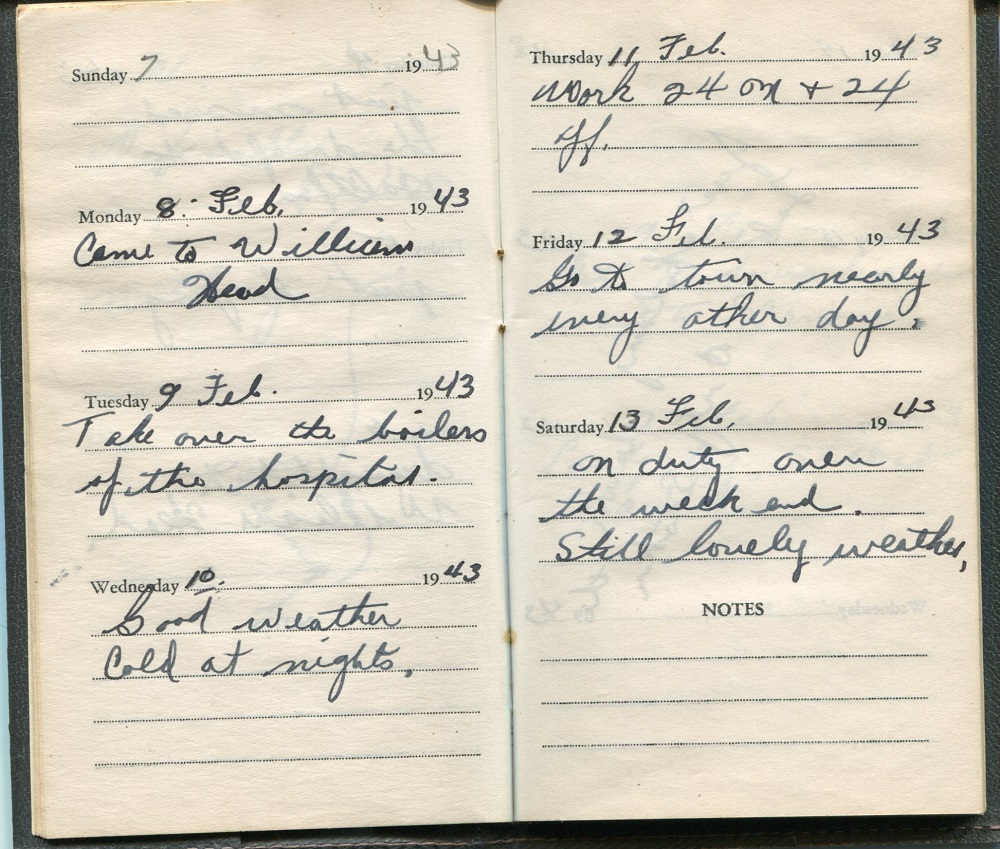 Sunday 7 1943
Monday 8. Feb. 1943
Came to William
Head
Tuesday 9 Feb. 1943
Take over the boilers
of the hospital.
Wednesday 10. 1943
Good weather
Cold at nights.
Thursday 11 Feb. 1943
Work 24 on + 24
off.
Friday 12 Feb. 1943
Go to town nearly
every other day.
Saturday 13 Feb. 1943
on duty over
the week end.
Still lovely weather,
NOTES